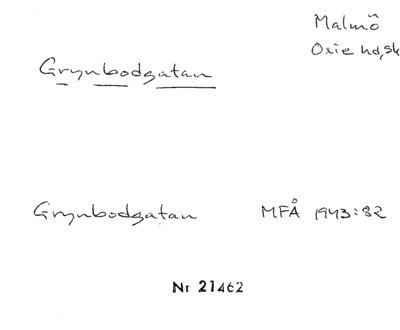 Malmö
Oxie hd, Sk
Grynbodgatan
Grynbodgatan MFÅ 1943:82
Nr 21462